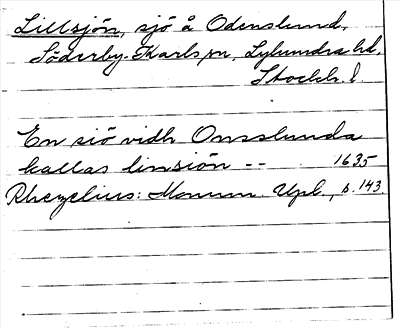 Lillsjön, sjö å Odenslund,
Söderby-Karls sn, Lyhundra hd,
Stockh. l.
En siö vidh Onsslunda
kallas linsiön -- 1635
Rhezelius: Monum. Upl., s. 143.